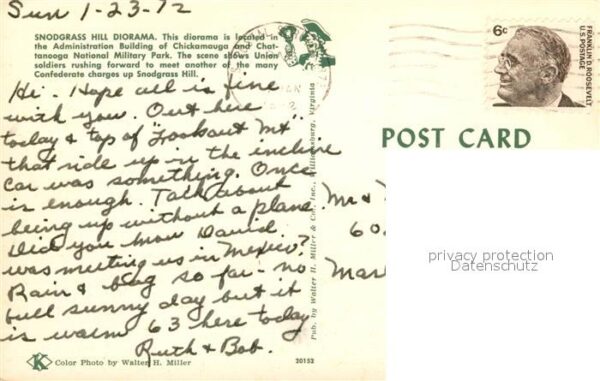 Sun 1-23-72
SNODGRASS HILL DIORAMA. This diorama is located in
the Administration Building of Chickamauga and Chat-
tanooga National Military Park. The scene shows Union
soldiers rushing forward to meet another of the many
Confederate charges up Snodgrass Hill.
Hi - Hope all is fine
with you. Out here
today & top of "Lookout Mt"
that ride up in the incline
car was something. Once
is enough. Talk about
being up without a plane.
Did you know David
was meeting us in Mexico?
Rain & fog so far - no
full sunny day but it
is warm 63 here today
Ruth & Bob.
K Color Photo by Walter H. Miller
20152
Pub. by Walter H. Miller & Co., Inc., Williamsburg, Virginia
6¢
FRANKLIN D. ROOSEVELT
U.S. POSTAGE
POST CARD
Mr &
60
Mar
privacy protection
Datenschutz